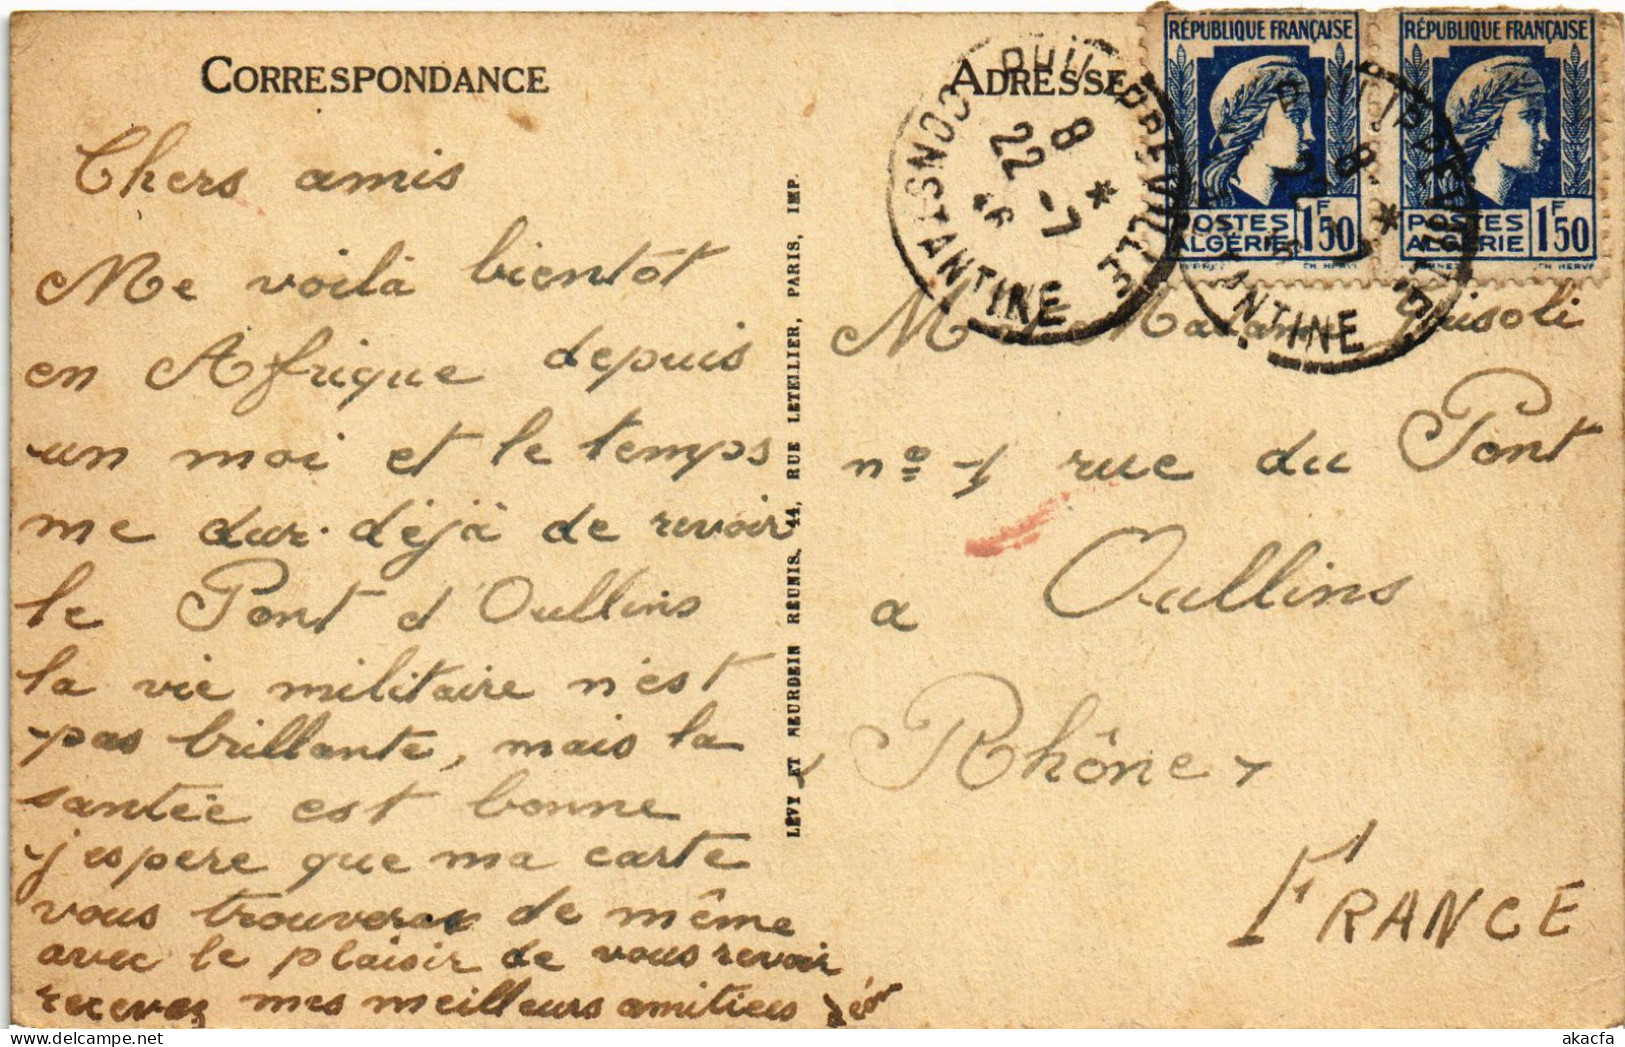 CORRESPONDANCE
Chers amis
Me voilà bientôt
en Afrique depuis
un moi et le temps
me dur déjà de revoir
le Pont d'Oullins
la vie militaire n'est
pas brillante, mais la
santée est bonne
j'espere que ma carte
vous trouveras de même
avec le plaisir de vous revoir
recevez mes meilleurs amitiees
LÉVY ET NEURDEIN RÉUNIS, 44, RUE LETELLIER, PARIS, IMP.
ADRESSE
PHILIPPEVILLE
CONSTANTINE
8 *
22 -7
46
RÉPUBLIQUE FRANÇAISE
POSTES
ALGÉRIE
1F50
RÉPUBLIQUE FRANÇAISE
POSTES
ALGÉRIE
1F50
PHILIPPEVILLE
ANTINE
8 *
M Madame
n° 1 rue du Pont
a Oullins
Rhône
FRANCE
akacfa